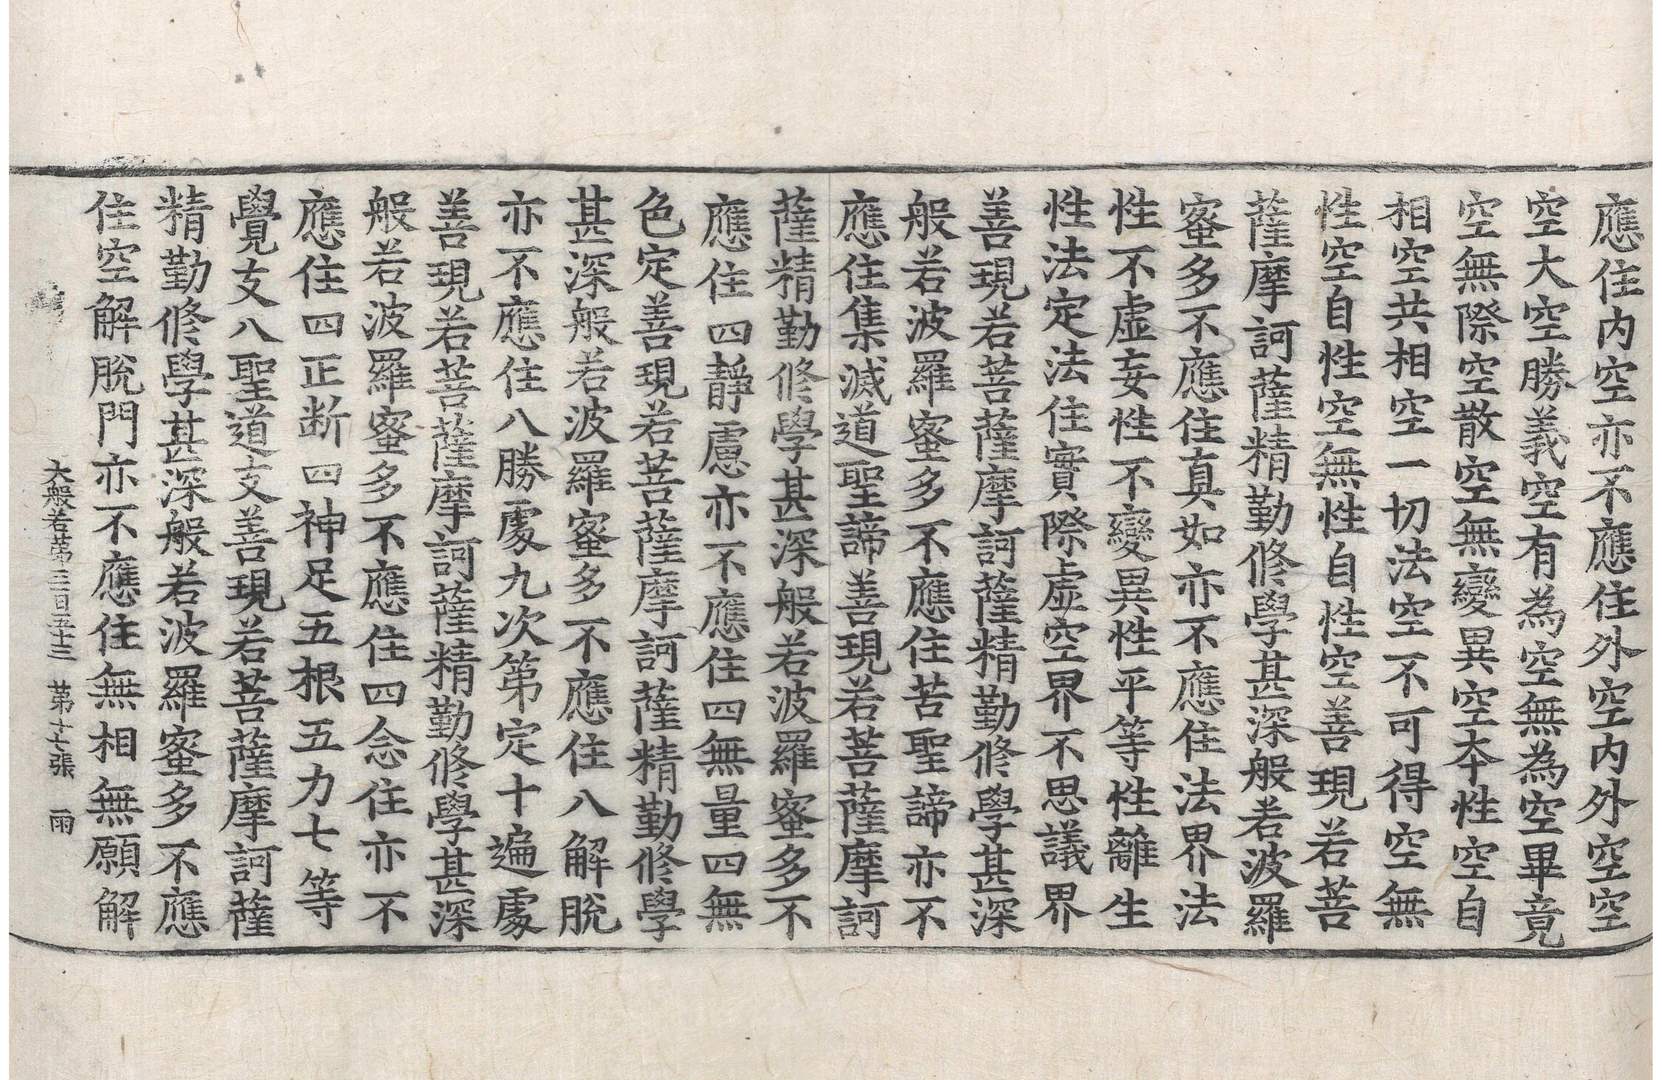 應住内空亦不應住外空内外空空
空大空勝義空有為空無為空畢竟
空無際空散空無變異空本性空自
相空共相空一切法空不可得空無
性空自性空無性自性空善現若菩
薩摩訶薩精勤修學甚深般若波羅
蜜多不應住真如亦不應住法界法
性不虛妄性不變異性平等性離生
性法定法住實際虛空界不思議界
善現若菩薩摩訶薩精勤修學甚深
般若波羅蜜多不應住苦聖諦亦不
應住集滅道聖諦善現若菩薩摩訶
薩精勤修學甚深般若波羅蜜多不
應住四靜慮亦不應住四無量四無
色定善現若菩薩摩訶薩精勤修學
甚深般若波羅蜜多不應住八解脫
亦不應住八勝處九次第定十遍處
善現若菩薩摩訶薩精勤修學甚深
般若波羅蜜多不應住四念住亦不
應住四正断四神足五根五力七等
覺支八聖道支善現若菩薩摩訶薩
精勤修學甚深般若波羅蜜多不應
住空解脫門亦不應住無相無願解
大般若第三百五十三 第十七張 雨